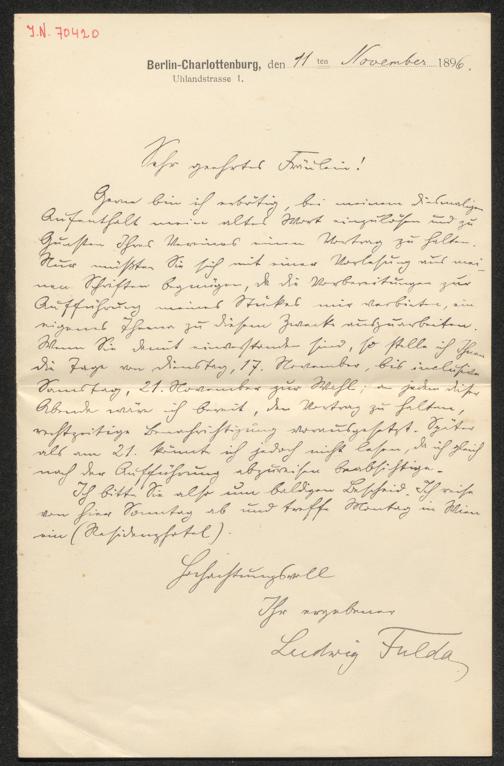 J.N. 70420
Berlin-Charlottenburg, den 11 ten November 1896.
Uhlandstrasse 1.
Sehr geehrtes Fräulein!
Gern bin ich erbötig, bei meinem diesmaligen
Aufenthalt mein altes Wort einzulösen und zu
Gunsten Ihres Vereines einen Vortrag zu halten.
Nur müßten Sie sich mit einer Vorlesung aus mei-
nen Schriften begnügen, da die Vorbereitungen zur
Aufführung meines Stückes mir verbieten, ein
eigenes Thema zu diesem Zweck auszuarbeiten.
Wenn Sie damit einverstanden sind, so stelle ich Ihnen
die Tage von Dienstag, 17. November, bis inclusive
Samstag, 21. November zur Wahl; an jedem dieser
Abende wäre ich bereit, den Vortrag zu halten,
rechtzeitige Benachrichtigung vorausgesetzt. Später
als am 21. könnte ich jedoch nicht lesen, da ich gleich
nach der Aufführung abzureisen beabsichtige.
Ich bitte Sie also um baldigen Bescheid. Ich reise
von hier Sonntag ab und treffe Montag in Wien
ein (Residenzhotel).
Hochachtungsvoll
Ihr ergebener
Ludwig Fulda